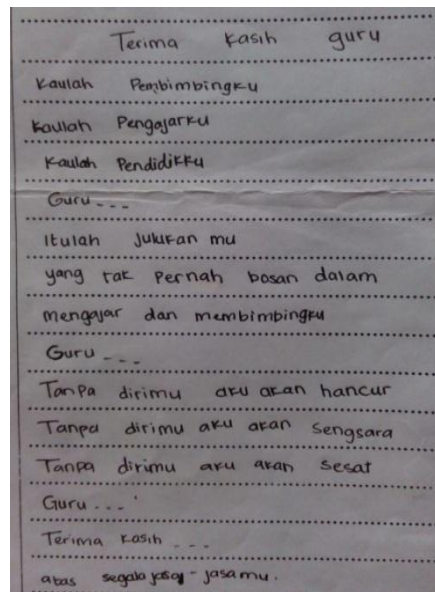 Terima kasih guru
Kaulah Pembimbingku
Kaulah Pengajarku
Kaulah Pendidikku
Guru ---
Itulah Julukan mu
yang tak Pernah bosan dalam
mengajar dan membimbingku
Guru ---
Tanpa dirimu aku akan hancur
Tanpa dirimu aku akan sengsara
Tanpa dirimu aku akan sesat
Guru ...
Terima Kasih ---
atas segala jasa - jasamu.